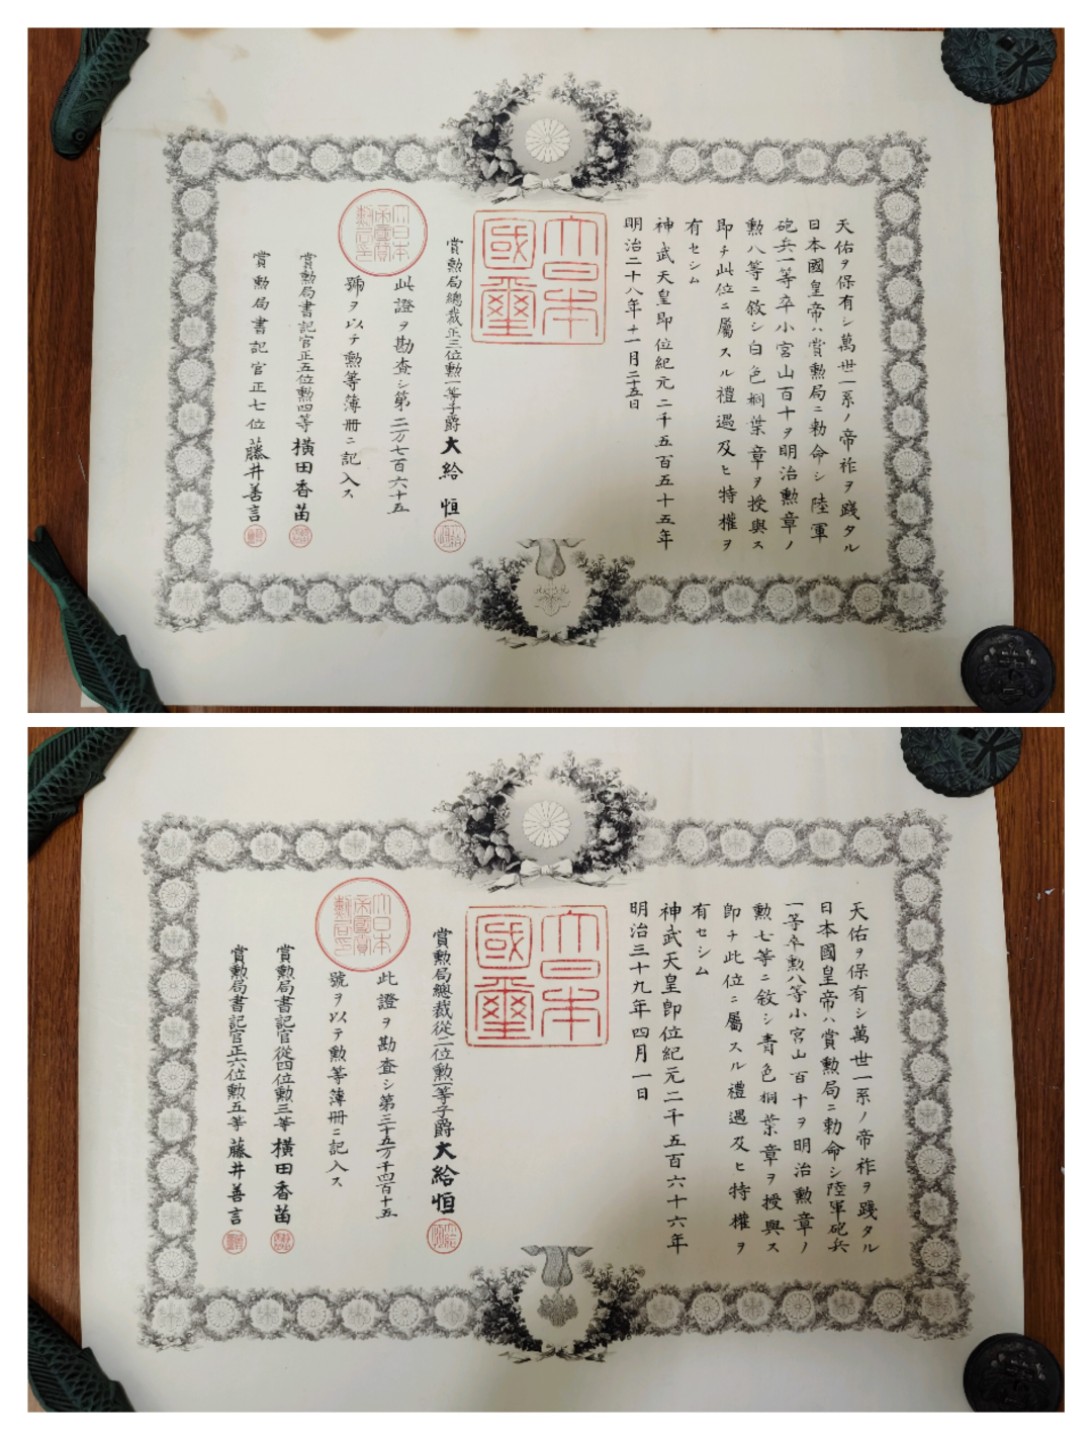 天佑ヲ保有シ萬世一系ノ帝祚ヲ踐タル
日本國皇帝ハ賞勲局ニ勅命シ陸軍
砲兵一等卒小宮山百十ヲ明治勲章ノ
勲八等ニ敘シ白色桐葉章ヲ授與ス
即チ此位ニ屬スル禮遇及ヒ特權ヲ
有セシム
神武天皇即位紀元二千五百五十五年
明治二十八年十一月二十五日
大日本
國璽
賞勲局總裁正三位勲一等子爵大給恒
此證ヲ勘査シ第二万七百六十五
號ヲ以テ勲等簿冊ニ記入ス
大日本
帝國賞
勲局印
賞勲局書記官正五位勲四等横田香苗
賞勲局書記官正七位藤井善言
天佑ヲ保有シ萬世一系ノ帝祚ヲ踐タル
日本國皇帝ハ賞勲局ニ勅命シ陸軍砲兵
一等卒勲八等小宮山百十ヲ明治勲章ノ
勲七等ニ敘シ青色桐葉章ヲ授與ス
即チ此位ニ屬スル禮遇及ヒ特權ヲ
有セシム
神武天皇即位紀元二千五百六十六年
明治三十九年四月一日
大日本
國璽
賞勲局總裁從二位勲一等子爵大給恒
此證ヲ勘査シ第三十五万千四百十五
號ヲ以テ勲等簿冊ニ記入ス
大日本
帝國賞
勲局印
賞勲局書記官從四位勲三等横田香苗
賞勲局書記官正六位勲五等藤井善言